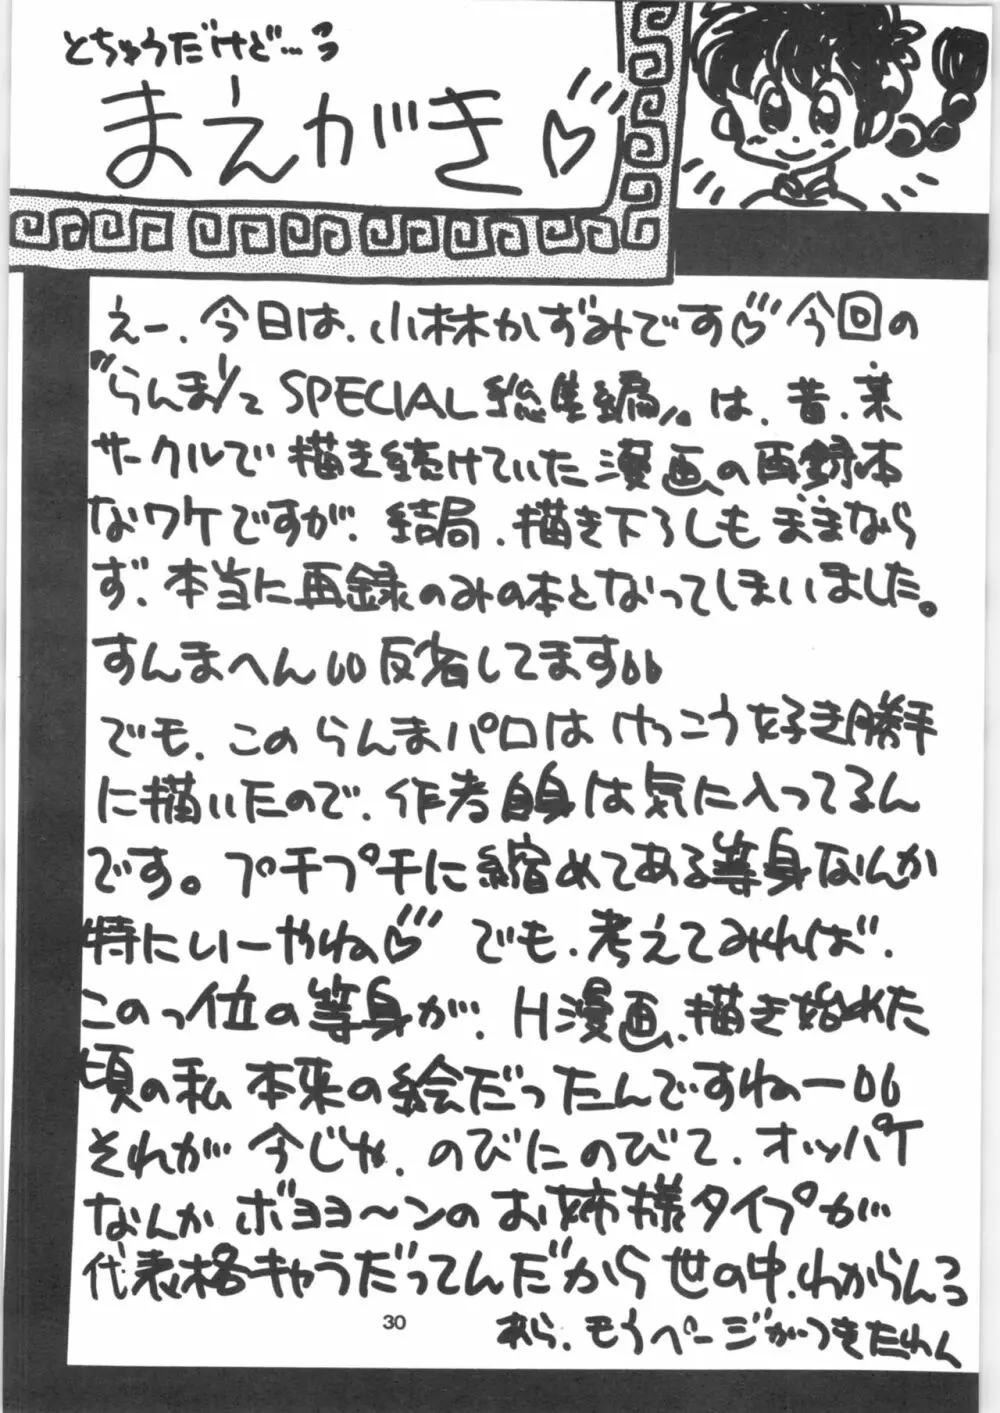 とちゅうだけど…っ
まえがき♡
えー、今日は、小林かずみです♡今回の
"らんま1/2 SPECIAL 総集編"は、昔、某
サークルで描き続けていた漫画の再録本
なワケですが、結局、描き下ろしもままなら
ず、本当に再録のみの本となってしまいました。
すんまへん 反省してます
でも、このらんまパロはけっこう好き勝手
に描いたので、作者自身は気に入ってるん
です。プチプチに縮めてある等身なんか
特にいーやね♡ でも、考えてみれば、
このっ位の等身が、H漫画、描き始めた
頃の私本来の絵だったんですねー
それが今じゃ、のびにのびて、オッパイ
なんかボヨヨ〜ンのお姉様タイプが
代表格キャラだってんだから世の中、わからんっっ
あら、もうページがつきたわん
30